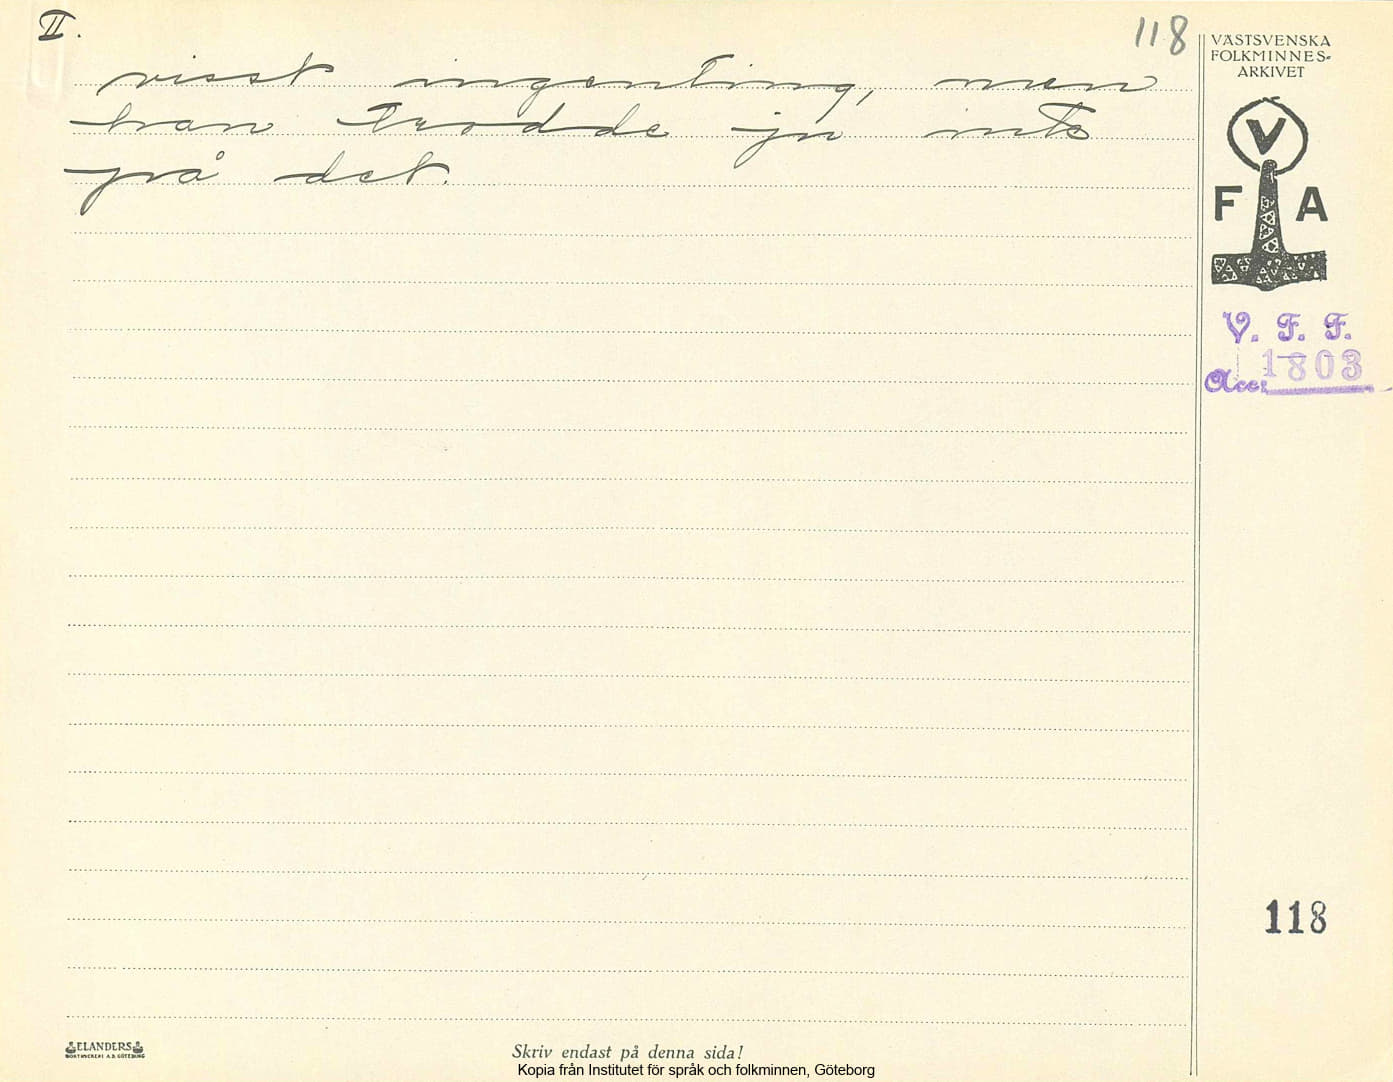 II.
118
visst ingenting, men
han trodde ju inte
på det.
VÄSTSVENSKA
FOLKMINNES-
ARKIVET
V
F A
V. F. F.
Acc: 1803
118
ELANDERS
BOKTRYCKERI A.B. GÖTEBORG
Skriv endast på denna sida!
Kopia från Institutet för språk och folkminnen, Göteborg